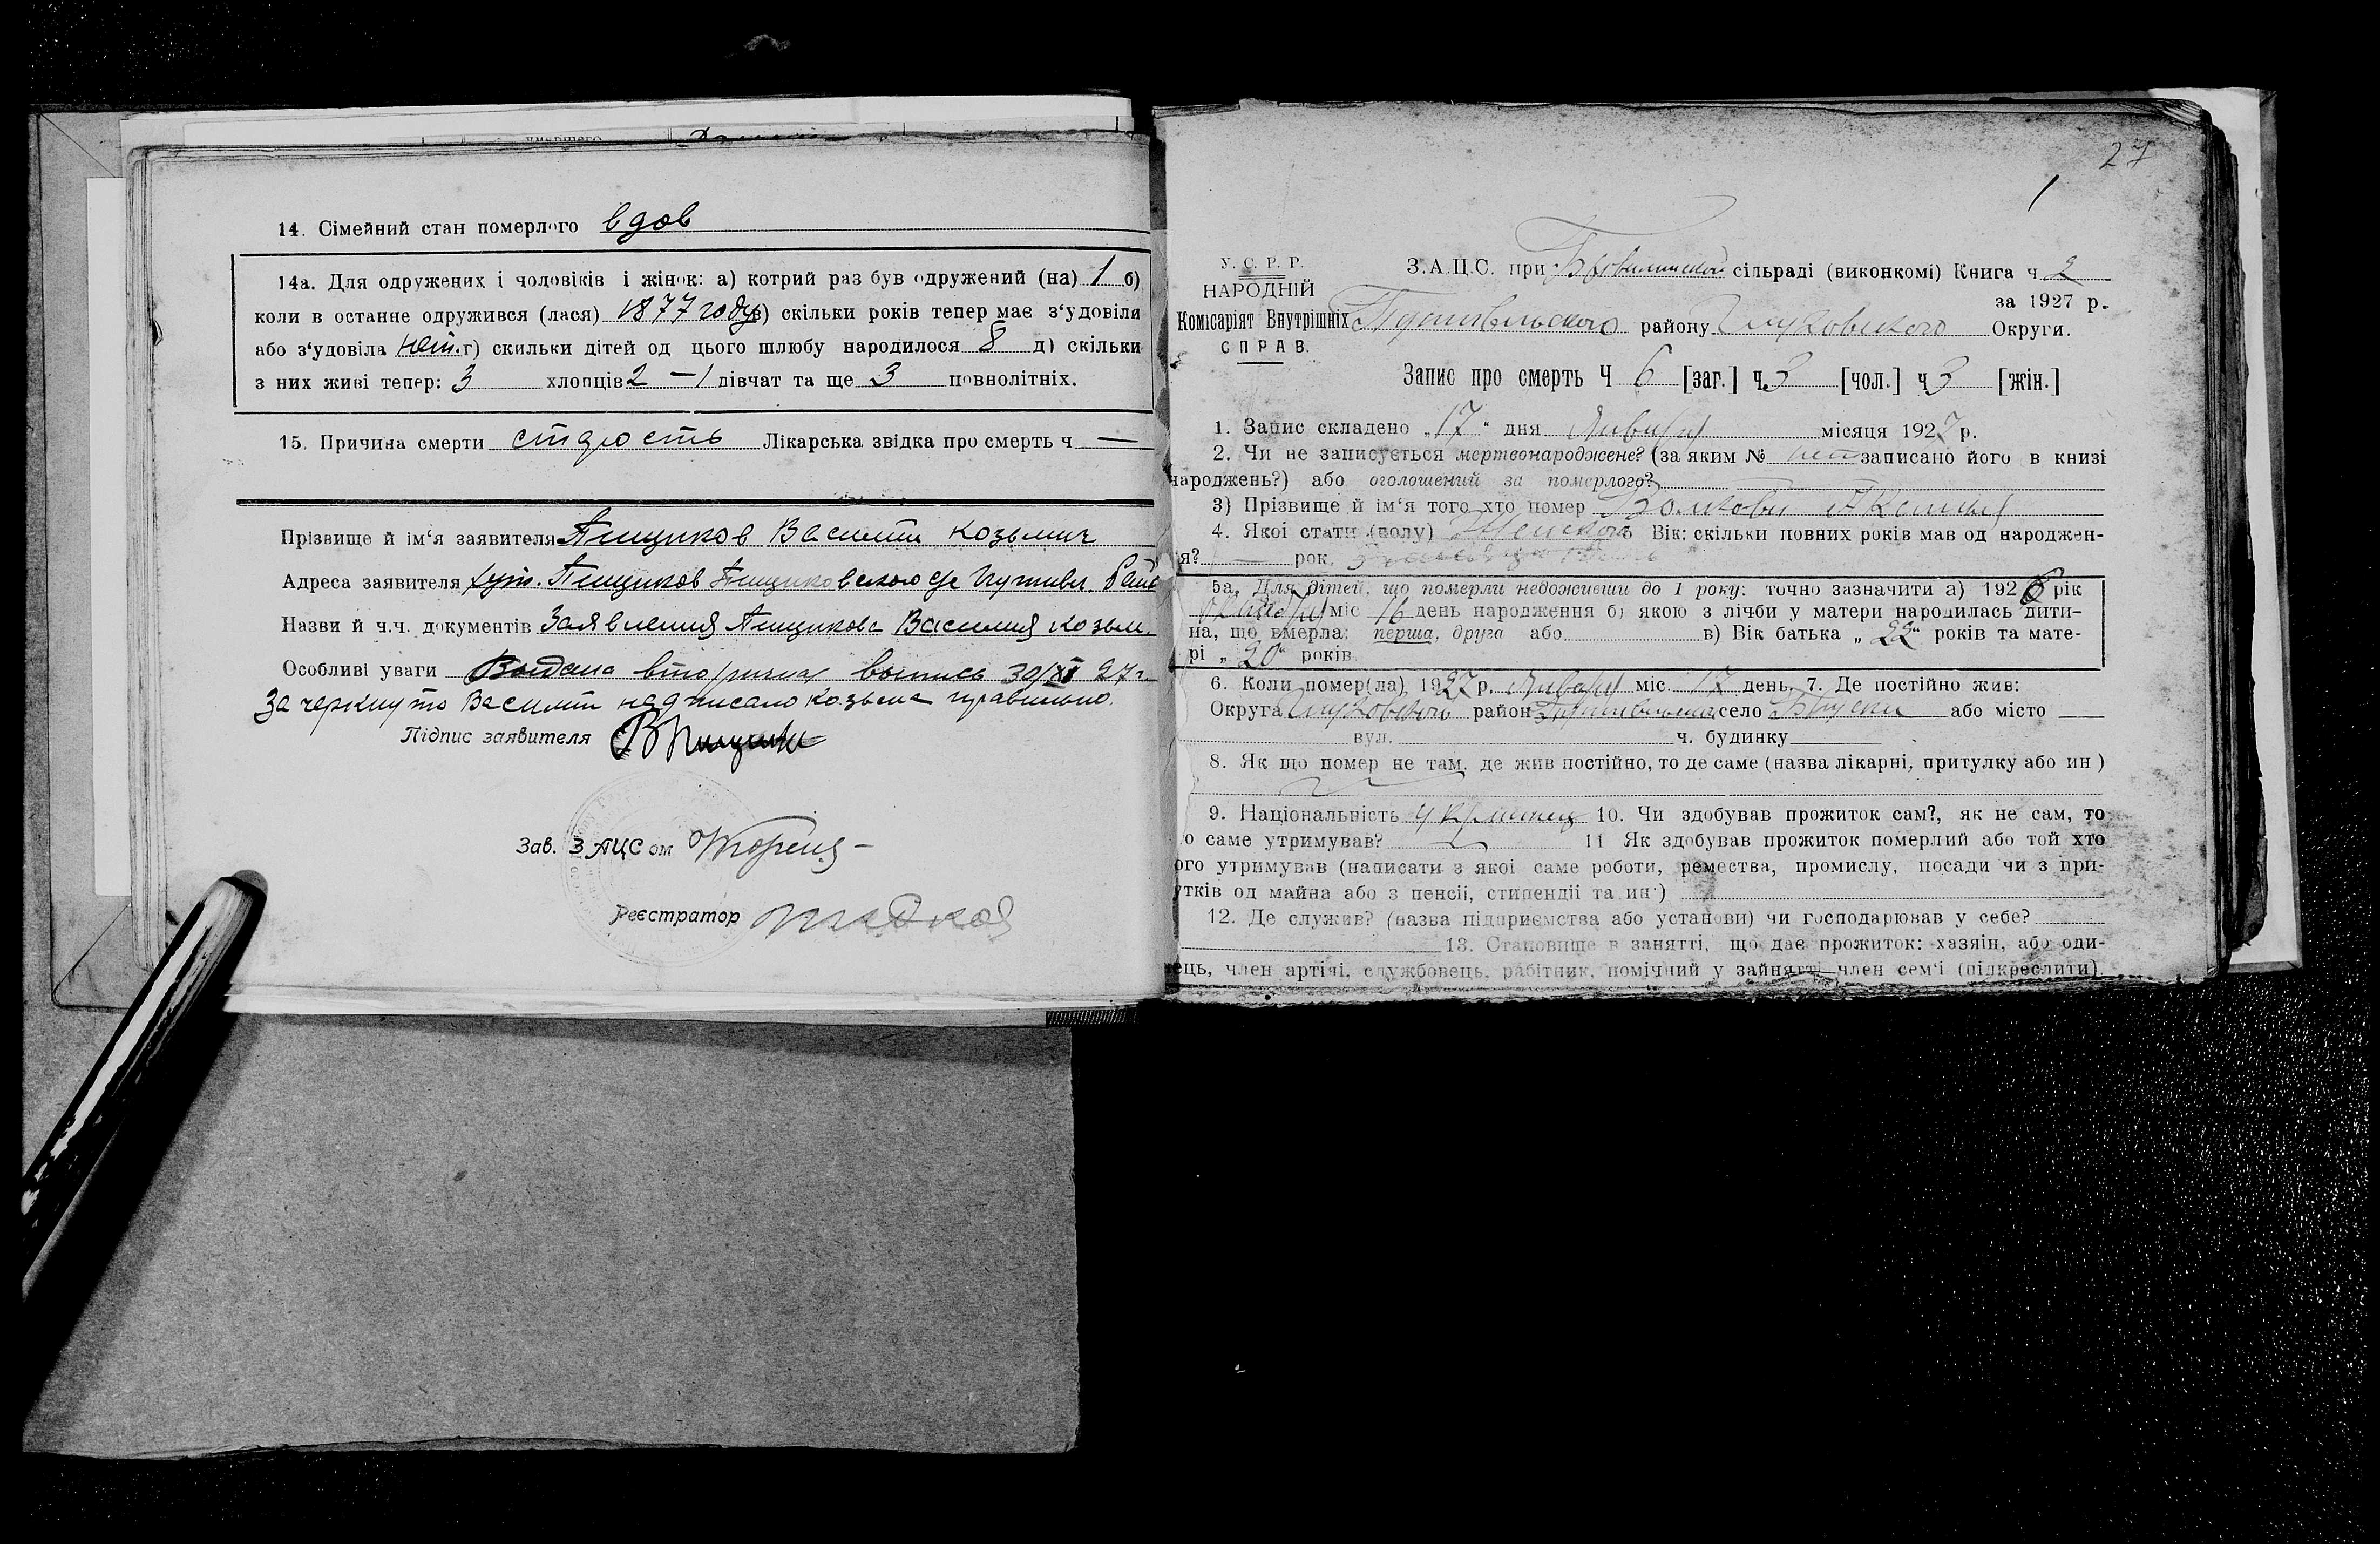 умершего
14. Сімейний стан померлого вдов
14а. Для одружених і чоловіків і жінок: а) котрий раз був одружений (на) 1 б)
коли в останне одружився (лася) 1877 году в) скільки років тепер має з‘удовіли
або з‘удовіла нет. г) скильки дітей од цього шлюбу народилося 8 д) скільки
з них живі тепер: 3 хлопців 2 — 1 дівчат та ще 3 повнолітніх.
15. Причина смерти старость Лікарська звідка про смерть ч —
Прізвище й ім‘я заявителя Пищиков Василий Козьмич
Адреса заявителя хут. Пищиков Пищиковского с/с Путивл. Рай
Назви й ч.ч. документів Заявления Пищикова Василия Козьм.
Особливі уваги Выдана вторичная выпись 30/XI 27 г.
Зачеркнуто Василий надписано Козьма правильно.
Підпис заявителя
Зав. ЗАЦС ом
Реєстратор
27
1
У. С. Р. Р.
НАРОДНІЙ
Комісаріят Внутрішніх
СПРАВ.
З.А.Ц.С. при сільраді (виконкомі) Книга ч 2
за 1927 р.
Путивльского району Глуховского Округи.
Запис про смерть Ч 6 [заг.] ч 3 [чол.] ч 3 [жін.]
1. Запис складено „17“ дня Января місяця 1927 р.
2. Чи не записується мертвонароджене? (за яким № нет записано його в книзі
народжень?) або оголошений за померлого?
3) Прізвище й ім‘я того хто помер
4. Якої стати (полу) Женского 5 Вік: скільки повних років мав од народжен-
я? — рок. 3 месяца
5а. Для дітей, що померли недоживши до 1 року: точно зазначити а) 1926 рік
Октября міс 16 день народження б) якою з лічби у матери народилась дити-
на, що вмерла: перша, друга або в) Вік батька „22“ років та мате-
рі „20“ років
6. Коли помер(ла), 1927 р. Января міс. 17 день. 7. Де постійно жив:
Округа Глуховского район Путивльский село або місто —
вул. ч. будинку
8. Як що помер не там, де жив постійно, то де саме (назва лікарні, притулку або ин )
9. Національність 10. Чи здобував прожиток сам?, як не сам, то
о саме утримував? 11 Як здобував прожиток померлий або той хто
ого утримував (написати з якої саме роботи, ремества, промислу, посади чи з при-
утків од майна або з пенсії, стипендії та ин·)
12. Де служив? (назва підприємства або установи) чи господарював у себе?
13. Становище в занятті, що дає прожиток: хазяїн, або оди-
ець, член артілі, службовець, рабітник, помічний у зайнятті член сем‘ї (підкреслити).